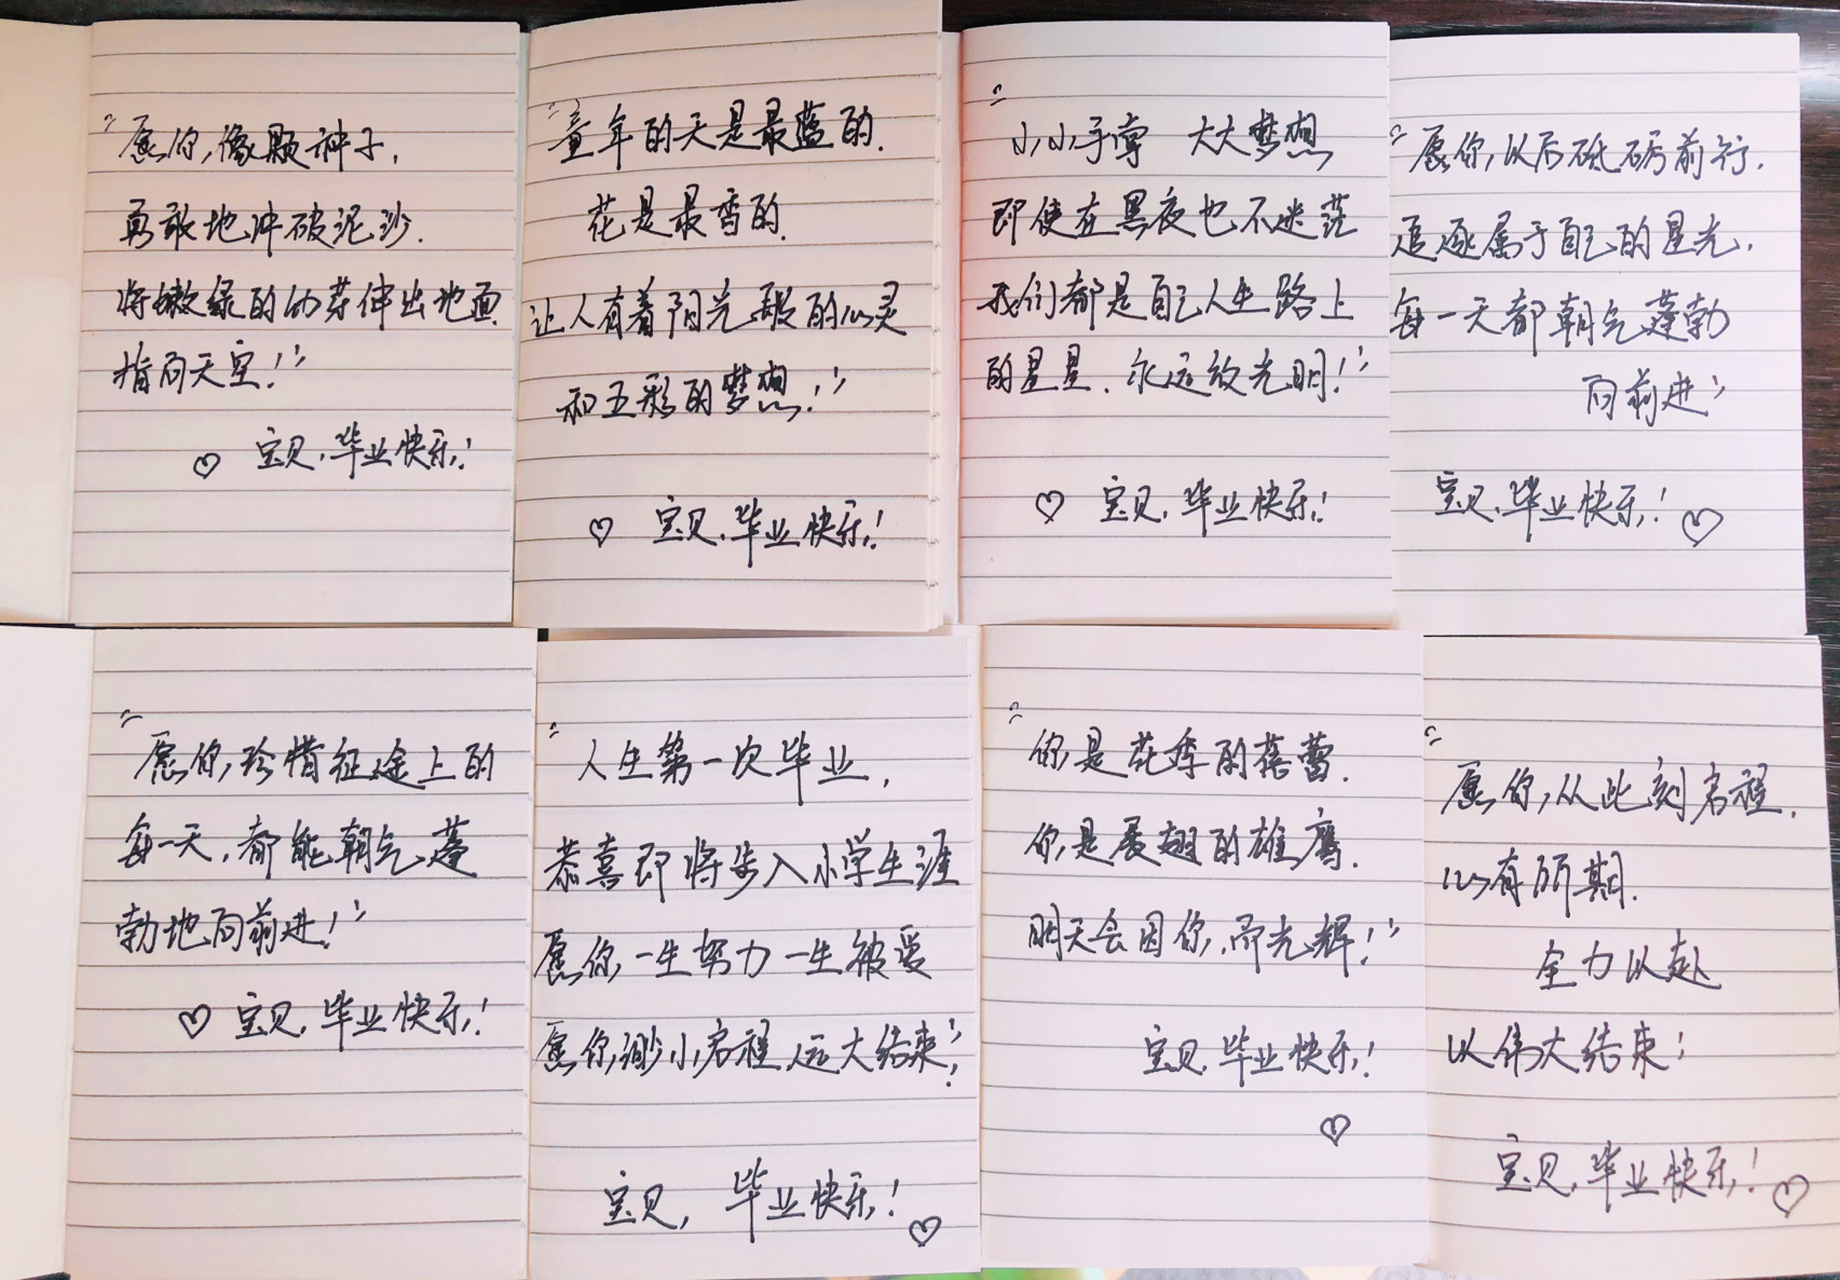 “愿你,像颗种子,
勇敢地冲破泥沙.
将嫩绿的幼芽伸出地面.
指向天空!”
♡ 宝贝,毕业快乐!
“童年的天是最蓝的.
花是最香的.
让人有着阳光般的心灵
和五彩的梦想!”
♡ 宝贝,毕业快乐!
“小小手掌 大大梦想
即使在黑夜也不迷茫
我们都是自己人生路上
的星星.永远放光明!”
♡ 宝贝,毕业快乐!
“愿你,以后砥砺前行.
追逐属于自己的星光.
每一天都朝气蓬勃
向前进”
宝贝,毕业快乐! ♡
“愿你,珍惜征途上的
每一天,都能朝气蓬
勃地向前进!”
♡ 宝贝,毕业快乐!
“人生第一次毕业,
恭喜即将步入小学生涯
愿你一生努力一生被爱
愿你,渺小启程,远大结束!”
宝贝, 毕业快乐! ♡
“你是花季的蓓蕾.
你是展翅的雄鹰.
明天会因你,而光辉!”
宝贝,毕业快乐!
♡
“愿你,从此刻启程.
心有所期.
全力以赴
以伟大结束!
宝贝,毕业快乐! ♡